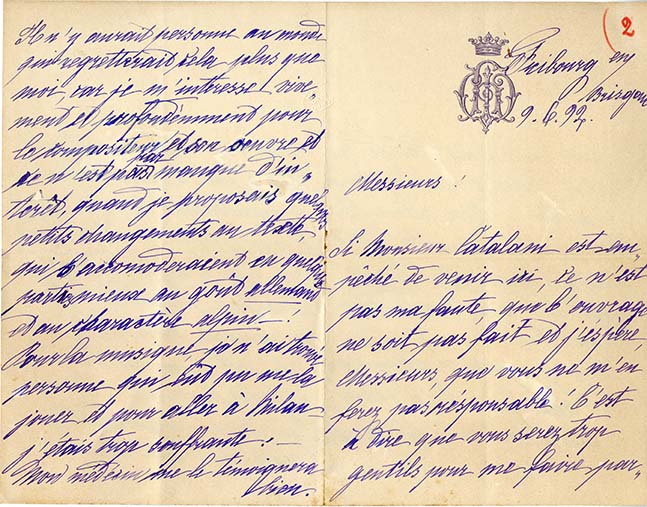 2
Fribourg en
Brisgau
9. 6. 92.
Messieurs!
Si Monsieur Catalani est em-
pêché de venir ici, ce n'est
pas ma faute que l'ouvrage
ne soit pas fait et j'espère,
Messieurs, que vous ne m'en
ferez pas responsable! C'est
à dire que vous serez trop
gentils pour me faire par-
Il n'y aurait personne au monde
qui regretterait cela plus que
moi, car je m'intéresse vive-
ment et profondémment pour
le compositeur et son oeuvre et
ce n'est pas par manque d'in-
térêt, quand je proposais quelques
petits changements au texte,
qui l'accomoderaient en quelques
parties mieux au goût allemand
et au charactère alpin!
Pour la musique je n'ai trouvé
personne qui eût pu me la
jouer et pour aller à Milan
j'étais trop souffrante. —
Mon médecin me le témoignera
bien.